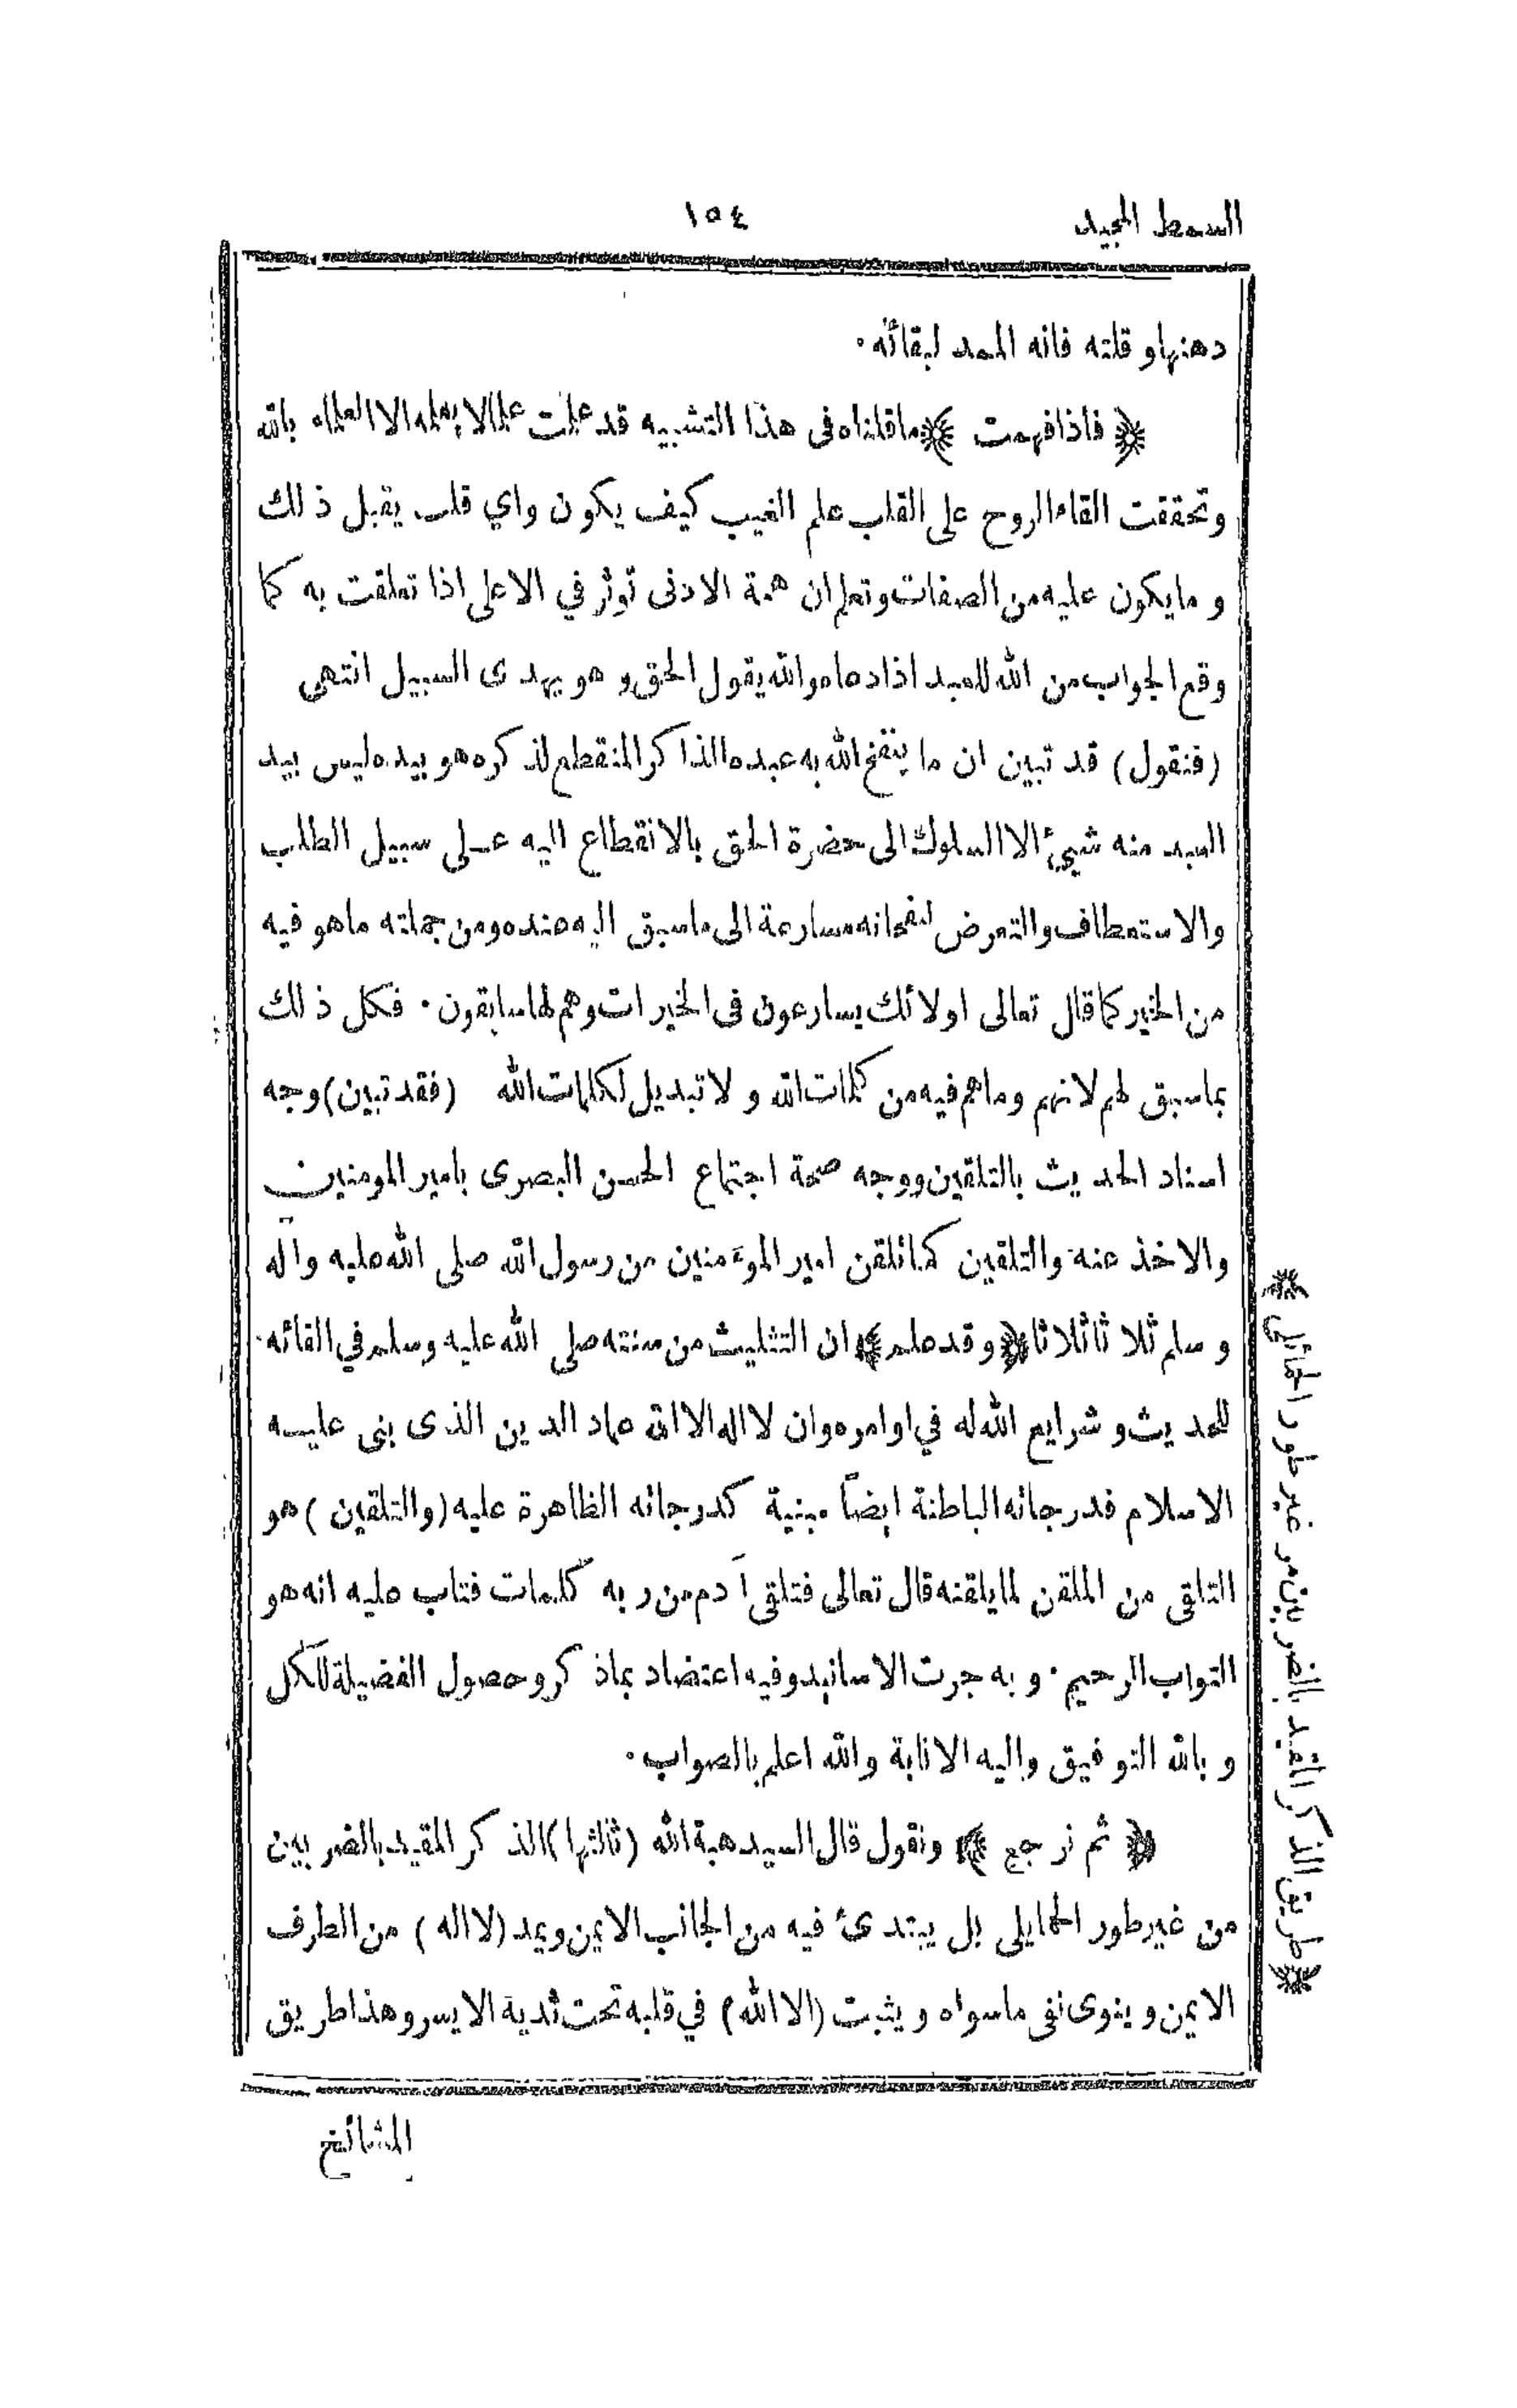 السمط المجيد
١٥٤
دهنها و قلته فانه الممد لبقائه ٠
﴿ فاذا فهمت ﴾ ما قلناه فى هذا التشبيه قد علمت علما لا يعلمه الا العلماء بالله
و تحققت القاء الروح على القلب علم الغيب كيف يكون واي قلب يقبل ذلك
و ما يكون عليه من الصفات و تعلم ان همة الادنى توثر في الاعلى اذا تعلقت به كما
وقع الجواب من الله للعبد اذا دعاه والله يقول الحق و هو يهدى السبيل انتهى
(فنقول) قد تبين ان ما ينفخ الله به عبده الذاكر المنقطع لذكره هو بيده ليس بيد
العبد منه شيئ الا السلوك الى حضرة الحق بالانقطاع اليه على سبيل الطلب
والاستعطاف والتعرض لنفحاته مسارعة الى ما سبق اليه عنده و من جملته ما هو فيه
من الخير كما قال تعالى اولائك يسارعون فى الخيرات و هم لها سابقون ٠ فكل ذلك
بما سبق لهم لانهم وما هم فيه من كلمات الله و لا تبديل لكلمات الله (فقد تبين) وجه
اسناد الحديث بالتلقين ووجه صحة اجتماع الحسن البصرى بامير المومنين
والاخذ عنه والتلقين كما تلقن امير الموءمنين من رسول الله صلى الله عليه وآله
و سلم ثلاثا ثلاثا ﴿ و قد علم ﴾ ان التثليث من سنته صلى الله عليه وسلم في القائه
للحديث و شرايع الله له في اوامره وان لا اله الا الله عماد الدين الذى بنى عليه
الاسلام فدرجاته الباطنة ايضاً مبنية كدرجاته الظاهرة عليه (والتلقين) هو
التلقى من الملقن لما يلقنه قال تعالى فتلقى آدم من ربه كلمات فتاب عليه انه هو
التواب الرحيم ٠ و به جرت الاسانيد وفيه اعتضاد بما ذكر وحصول الفضيلة للكل
و بالله التوفيق واليه الانابة والله اعلم بالصواب ٠
﴿ ثم نرجع ﴾ ونقول قال السيد هبة الله (ثالثها) الذكر المقيد بالضربين
من غير طور الحمايلى بل يبتدىء فيه من الجانب الايمن ويمد (لا اله) من الطرف
الايمن و ينوى نفى ما سواه و يثبت (الا الله) في قلبه تحت ثدية الايسر وهذا طريق
المشائخ
﴿ طريق الذكر المقيد بالضربين من غير طور الحمائلى ﴾